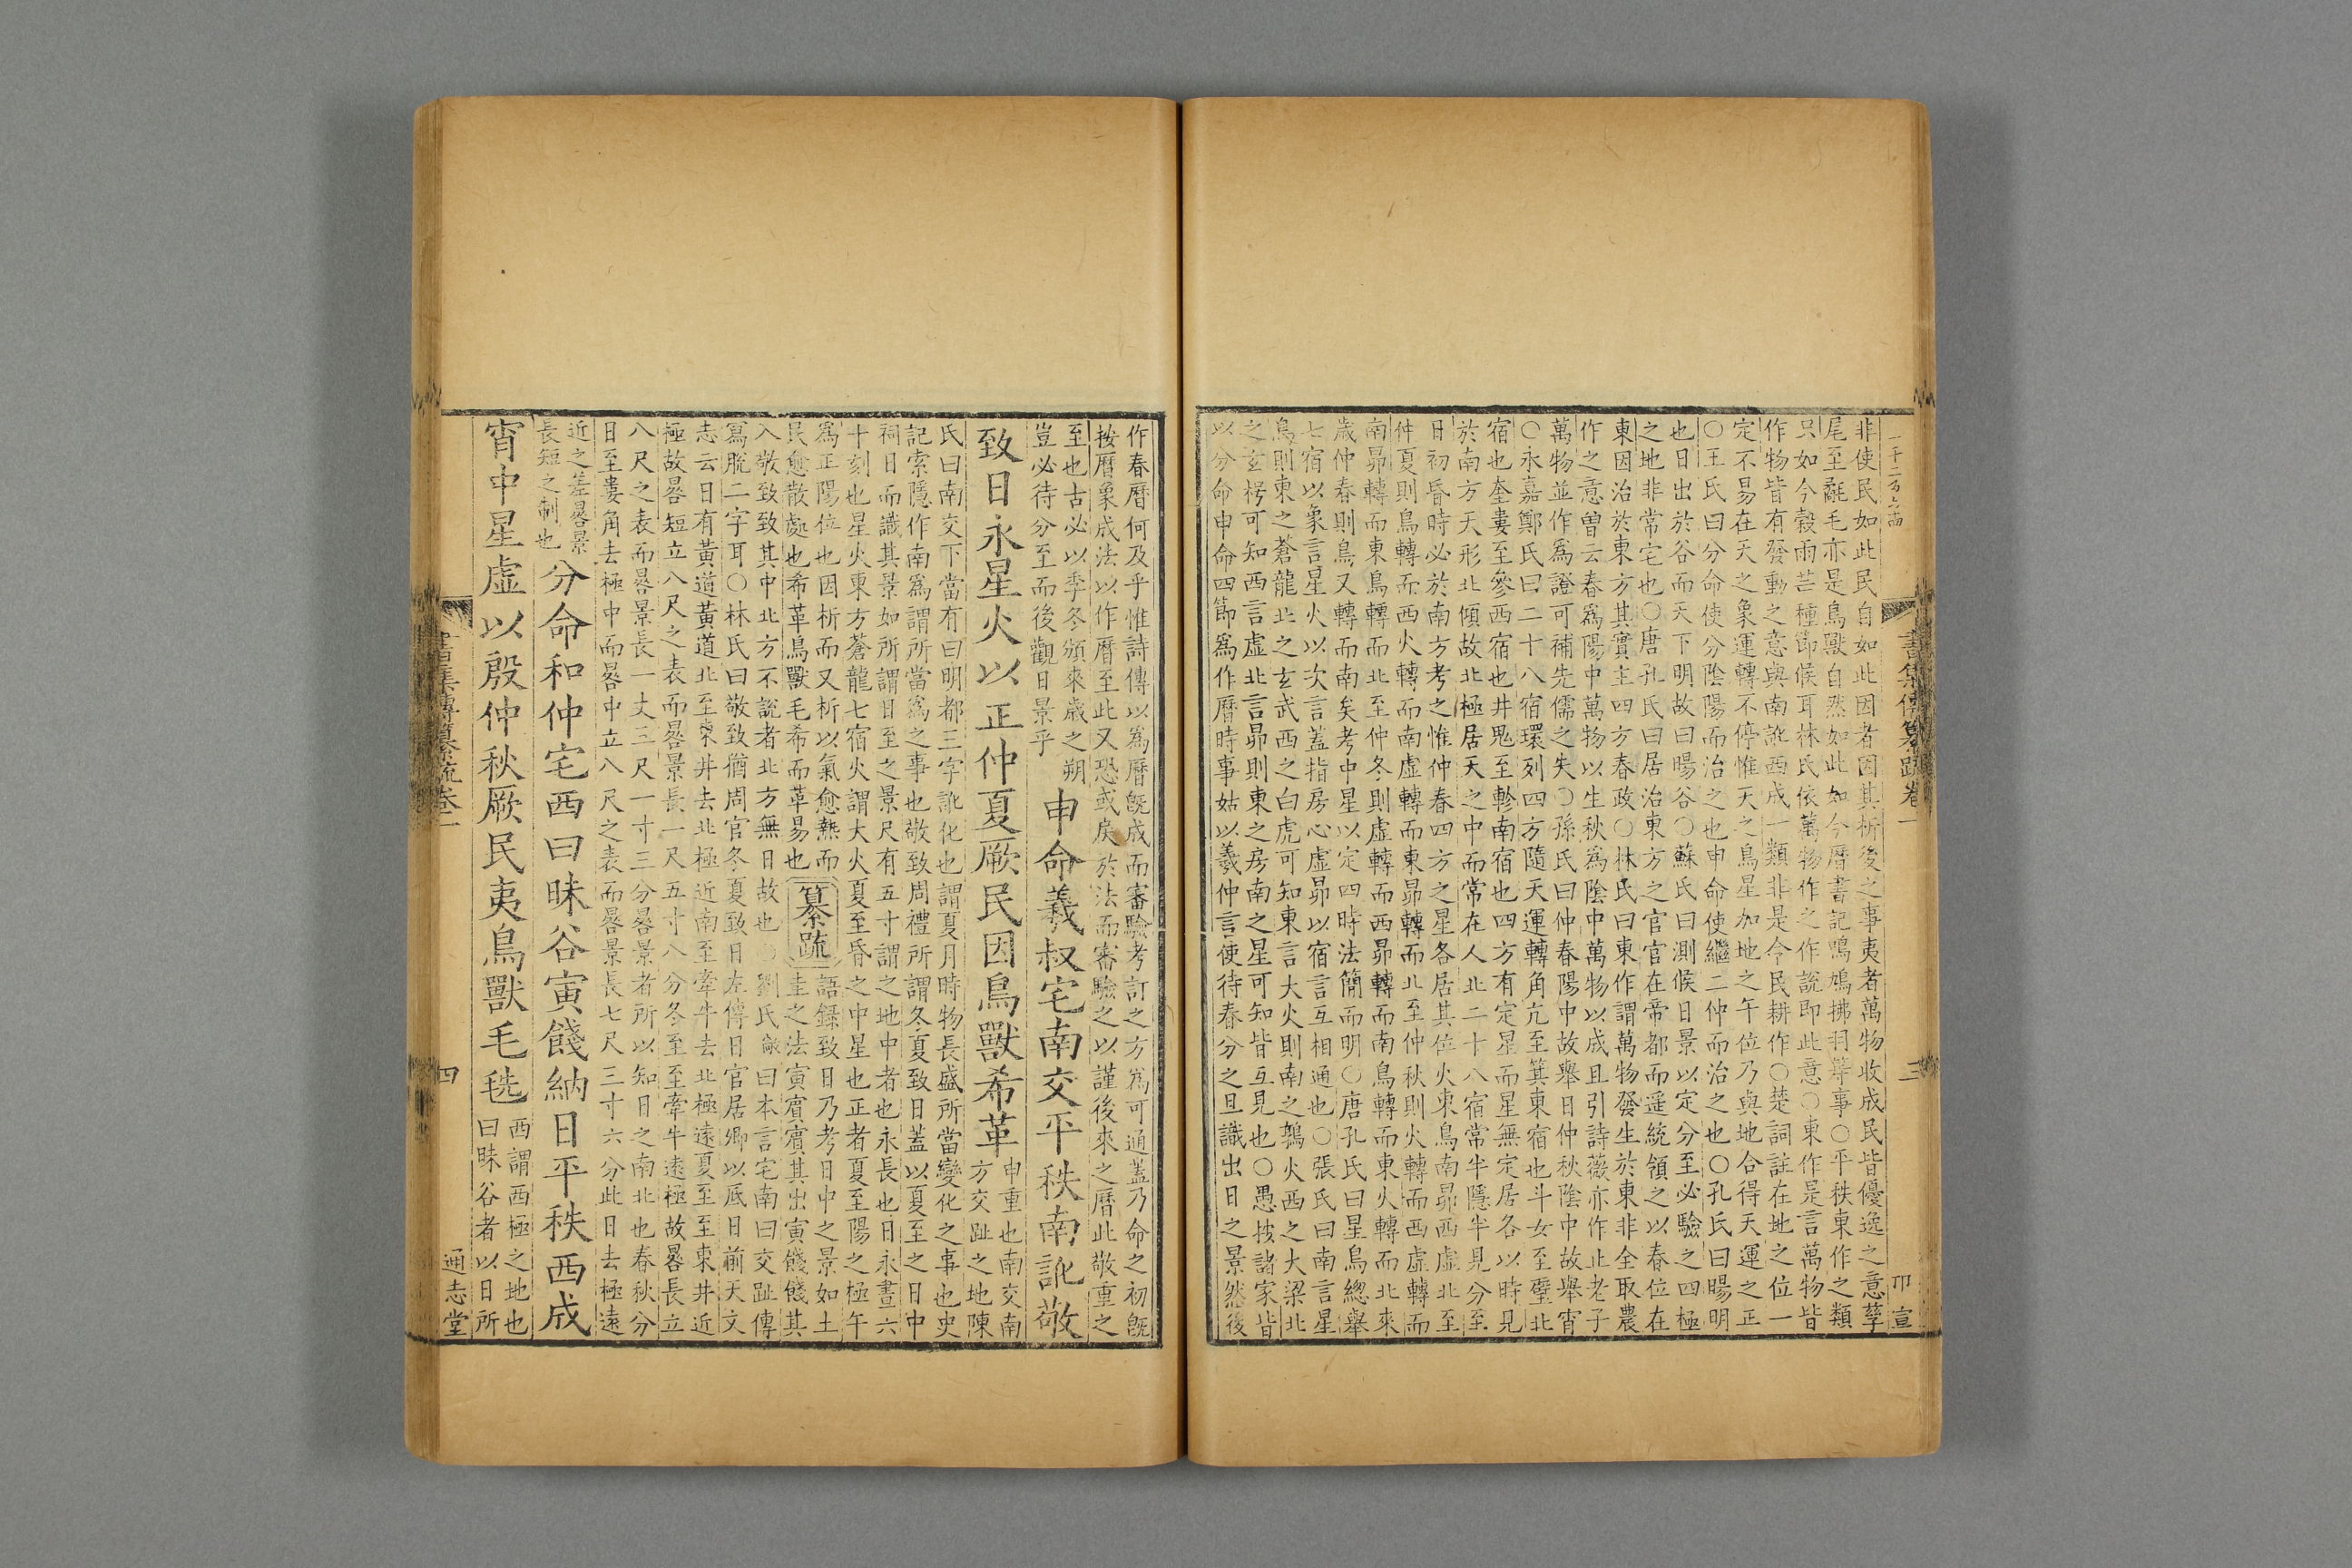 二千二百六兩
書集傳纂疏卷一
三
卭宣
非使民如此民自如此因者因其析後之事夷者萬物收成民皆優逸之意孳
尾至氄毛亦是鳥獸自然如此如今曆書記鳴鳩拂羽等事〇平秩東作之類
只如今穀雨芒種節候耳林氏依萬物作之作說即此意〇東作是言萬物皆
作物皆有發動之意與南訛西成一類非是令民耕作〇楚詞註在地之位一
定不易在天之象運轉不停惟天之鳥星加地之午位乃與地合得天運之正
〇王氏曰分命使分陰陽而治之也申命使繼二仲而治之也〇孔氏曰暘明
也日出於谷而天下明故曰暘谷〇蘇氏曰測候日景以定分至必驗之四極
之地非常宅也〇唐孔氏曰居治東方之官官在帝都而遥統領之以春位在
東因治於東方其實主四方春政〇林氏曰東作謂萬物發生於東非全取農
作之意曽云春爲陽中萬物以生秋爲陰中萬物以成且引詩薇亦作止老子
萬物並作爲證可補先儒之失〇孫氏曰仲春陽中故舉日仲秋陰中故舉宵
〇永嘉鄭氏曰二十八宿環列四方隨天運轉角亢至箕東宿也斗女至壁北
宿也奎婁至參西宿也井鬼至軫南宿也四方有定星而星無定居各以時見
於南方天形北傾故北極居天之中而常在人北二十八宿常半隱半見分至
日初昏時必於南方考之惟仲春四方之星各居其位火東鳥南昴西虛北至
仲夏則鳥轉而西火轉而南虛轉而東昴轉而北至仲秋則火轉而西虛轉而
南昴轉而東鳥轉而北至仲冬則虛轉而西昴轉而南鳥轉而東火轉而北來
歲仲春則鳥又轉而南矣考中星以定四時法簡而明〇唐孔氏曰星鳥總舉
七宿以象言星火以次言蓋指房心虛昴以宿言互相通也〇張氏曰南言星
鳥則東之蒼龍北之玄武西之白虎可知東言大火則南之鶉火西之大梁北
之玄枵可知西言虛北言昴則東之房南之星可知皆互見也〇愚按諸家皆
以分命申命四節爲作曆時事姑以羲仲言使待春分之旦識出日之景然後
作春曆何及乎惟詩傳以爲曆旣成而審驗考訂之方爲可通蓋乃命之初旣
按曆象成法以作曆至此又恐或戾於法而審驗之以謹後來之曆此敬重之
至也古必以季冬頒來歲之朔
豈必待分至而後觀日景乎
申命羲叔宅南交平秩南訛敬
致日永星火以正仲夏厥民因鳥獸希革
申重也南交南
方交趾之地陳
氏曰南交下當有曰明都三字訛化也謂夏月時物長盛所當變化之事也史
記索隱作南爲謂所當爲之事也敬致周禮所謂冬夏致日蓋以夏至之日中
祠日而識其景如所謂日至之景尺有五寸謂之地中者也永長也日永晝六
十刻也星火東方蒼龍七宿火謂大火夏至昏之中星也正者夏至陽之極午
爲正陽位也因析而又析以氣愈熱而
民愈散處也希革鳥獸毛希而革易也
纂疏
語錄致日乃考日中之景如土
圭之法寅賓賓其出寅餞餞其
入敬致致其中北方不說者北方無日故也〇劉氏敞曰本言宅南曰交趾傳
寫脫二字耳〇林氏曰敬致猶周官冬夏致日左傳日官居卿以厎日前天文
志云日有黃道黃道北至東井去北極近南至牽牛去北極遠夏至至東井近
極故晷短立八尺之表而晷景長一尺五寸八分冬至至牽牛遠極故晷長立
八尺之表而晷景長一丈三尺一寸三分晷景者所以知日之南北也春秋分
日至婁角去極中而晷中立八尺之表而晷景長七尺三寸六分此日去極遠
近之差晷景
長短之制也
分命和仲宅西曰昧谷寅餞納日平秩西成
宵中星虛以殷仲秋厥民夷鳥獸毛毨
西謂西極之地也
曰昧谷者以日所
書集傳纂疏卷一
四
通志堂